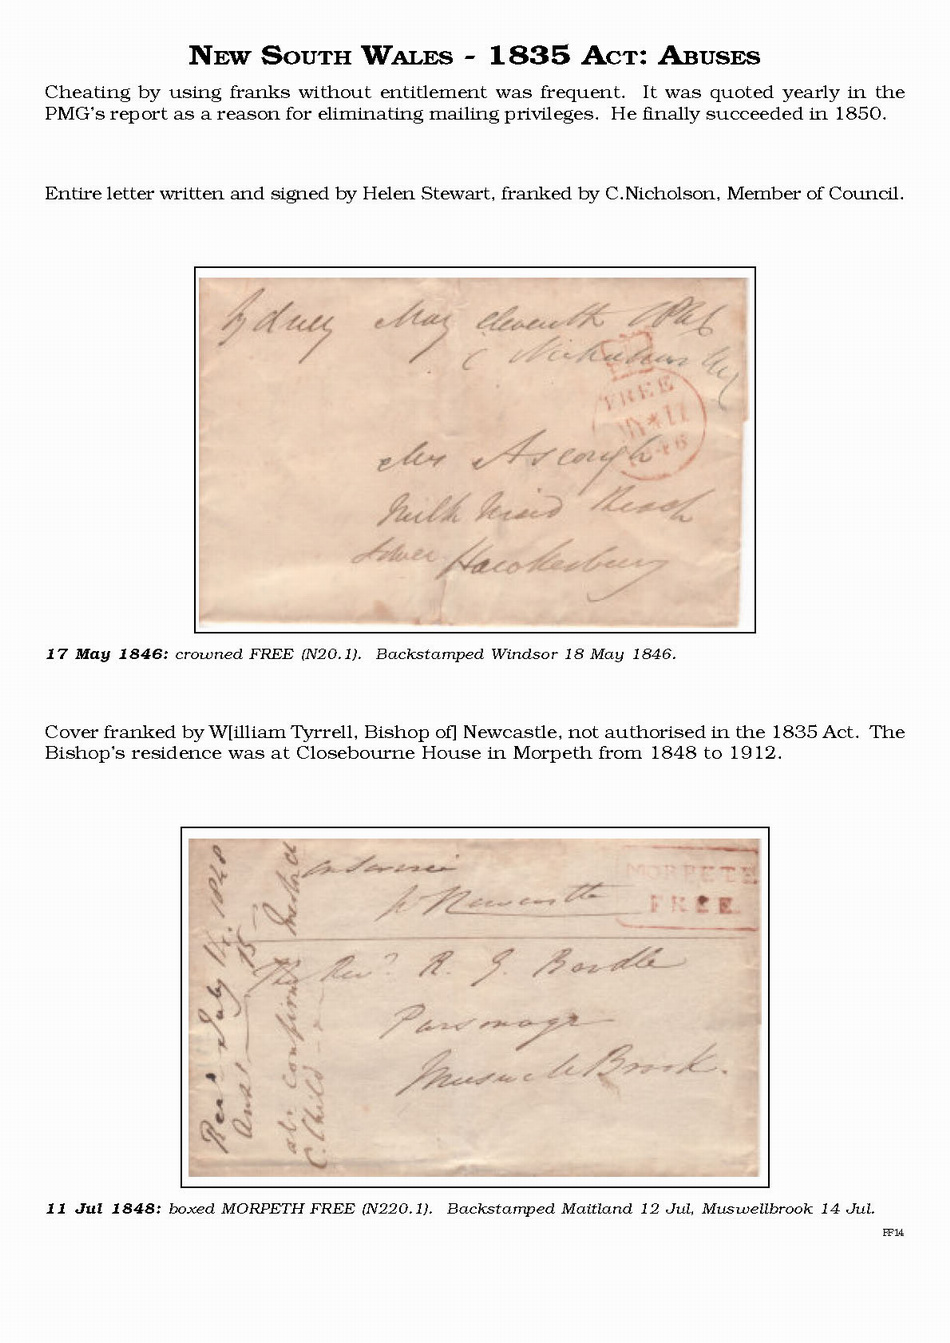 New South Wales - 1835 Act: Abuses
Cheating by using franks without entitlement was frequent. It was quoted yearly in the
PMG's report as a reason for eliminating mailing privileges. He finally succeeded in 1850.
Entire letter written and signed by Helen Stewart, franked by C.Nicholson, Member of Council.
Sydney May eleventh 1846
C Nicholson
FREE
MY*11
1846
Mrs Ascough
Milk Maid Reach
Lower Hawkesbury
17 May 1846: crowned FREE (N20.1). Backstamped Windsor 18 May 1846.
Cover franked by W[illiam Tyrrell, Bishop of] Newcastle, not authorised in the 1835 Act. The
Bishop's residence was at Closebourne House in Morpeth from 1848 to 1912.
On Service
MORPETH
W Newcastle
FREE
The Revd. R. G. Boodle
Parsonage
Muswell Brook.
July 14. 1848
Ansd 15
C. Child
11 Jul 1848: boxed MORPETH FREE (N220.1). Backstamped Maitland 12 Jul, Muswellbrook 14 Jul.
FF14